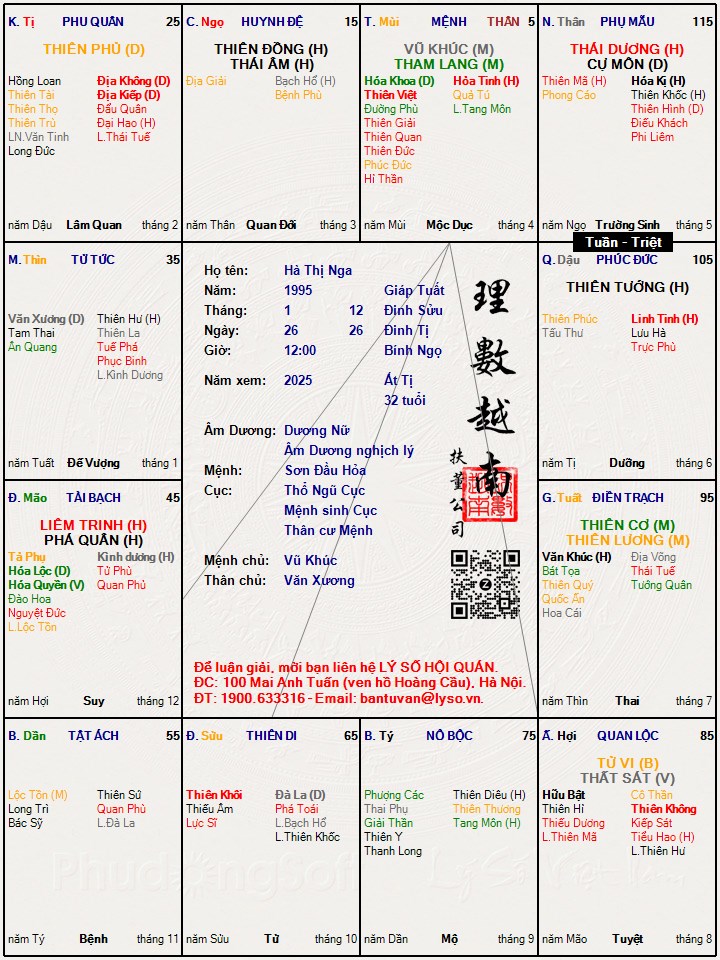 K. Tị PHU QUÂN 25
THIÊN PHỦ (D)
Hồng Loan Địa Không (D)
Thiên Tài Địa Kiếp (D)
Thiên Thọ Đẩu Quân
Thiên Trù Đại Hao (H)
LN.Văn Tinh L.Thái Tuế
Long Đức
năm Dậu Lâm Quan tháng 2
C. Ngọ HUYNH ĐỆ 15
THIÊN ĐỒNG (H)
THÁI ÂM (H)
Địa Giải Bạch Hổ (H)
Bệnh Phù
năm Thân Quan Đới tháng 3
T. Mùi MỆNH THÂN 5
VŨ KHÚC (M)
THAM LANG (M)
Hóa Khoa (D) Hỏa Tinh (H)
Thiên Việt Quả Tú
Đường Phù L.Tang Môn
Thiên Giải
Thiên Quan
Thiên Đức
Phúc Đức
Hỉ Thần
năm Mùi Mộc Dục tháng 4
N. Thân PHỤ MẪU 115
THÁI DƯƠNG (H)
CỰ MÔN (D)
Thiên Mã (H) Hóa Kị (H)
Phong Cáo Thiên Khốc (H)
Thiên Hình (D)
Điếu Khách
Phi Liêm
năm Ngọ Trường Sinh tháng 5
Tuần - Triệt
M. Thìn TỬ TỨC 35
Văn Xương (D) Thiên Hư (H)
Tam Thai Thiên La
Ân Quang Tuế Phá
Phục Binh
L.Kình Dương
năm Tuất Đế Vượng tháng 1
Họ tên: Hà Thị Nga
Năm: 1995 Giáp Tuất
Tháng: 1 12 Đinh Sửu
Ngày: 26 26 Đinh Tị
Giờ: 12:00 Bính Ngọ
Năm xem: 2025 Ất Tị
32 tuổi
Âm Dương: Dương Nữ
Âm Dương nghịch lý
Mệnh: Sơn Đầu Hỏa
Cục: Thổ Ngũ Cục
Mệnh sinh Cục
Thân cư Mệnh
Mệnh chủ: Vũ Khúc
Thân chủ: Văn Xương
理數越南
扶董公司
Để luận giải, mời bạn liên hệ LÝ SỐ HỘI QUÁN.
ĐC: 100 Mai Anh Tuấn (ven hồ Hoàng Cầu), Hà Nội.
ĐT: 1900.633316 - Email: bantuvan@lyso.vn.
Q. Dậu PHÚC ĐỨC 105
THIÊN TƯỚNG (H)
Thiên Phúc Linh Tinh (H)
Tấu Thư Lưu Hà
Trực Phù
năm Tị Dưỡng tháng 6
Đ. Mão TÀI BẠCH 45
LIÊM TRINH (H)
PHÁ QUÂN (H)
Tả Phụ Kình dương (H)
Hóa Lộc (D) Tử Phù
Hóa Quyền (V) Quan Phủ
Đào Hoa
Nguyệt Đức
L.Lộc Tồn
năm Hợi Suy tháng 12
G. Tuất ĐIỀN TRẠCH 95
THIÊN CƠ (M)
THIÊN LƯƠNG (M)
Văn Khúc (H) Địa Võng
Bát Tọa Thái Tuế
Thiên Quý Tướng Quân
Quốc Ấn
Hoa Cái
năm Thìn Thai tháng 7
B. Dần TẬT ÁCH 55
Lộc Tồn (M) Thiên Sứ
Long Trì Quan Phù
Bác Sỹ L.Đà La
năm Tý Bệnh tháng 11
Đ. Sửu THIÊN DI 65
Thiên Khôi Đà La (D)
Thiếu Âm Phá Toái
Lực Sĩ L.Bạch Hổ
L.Thiên Khốc
năm Sửu Tử tháng 10
B. Tý NÔ BỘC 75
Phượng Các Thiên Diêu (H)
Thai Phụ Thiên Thương
Giải Thần Tang Môn (H)
Thiên Y
Thanh Long
năm Dần Mộ tháng 9
Ấ. Hợi QUAN LỘC 85
TỬ VI (B)
THẤT SÁT (V)
Hữu Bật Cô Thần
Thiên Hỉ Thiên Không
Thiếu Dương Kiếp Sát
L.Thiên Mã Tiểu Hao (H)
L.Thiên Hư
năm Mão Tuyệt tháng 8